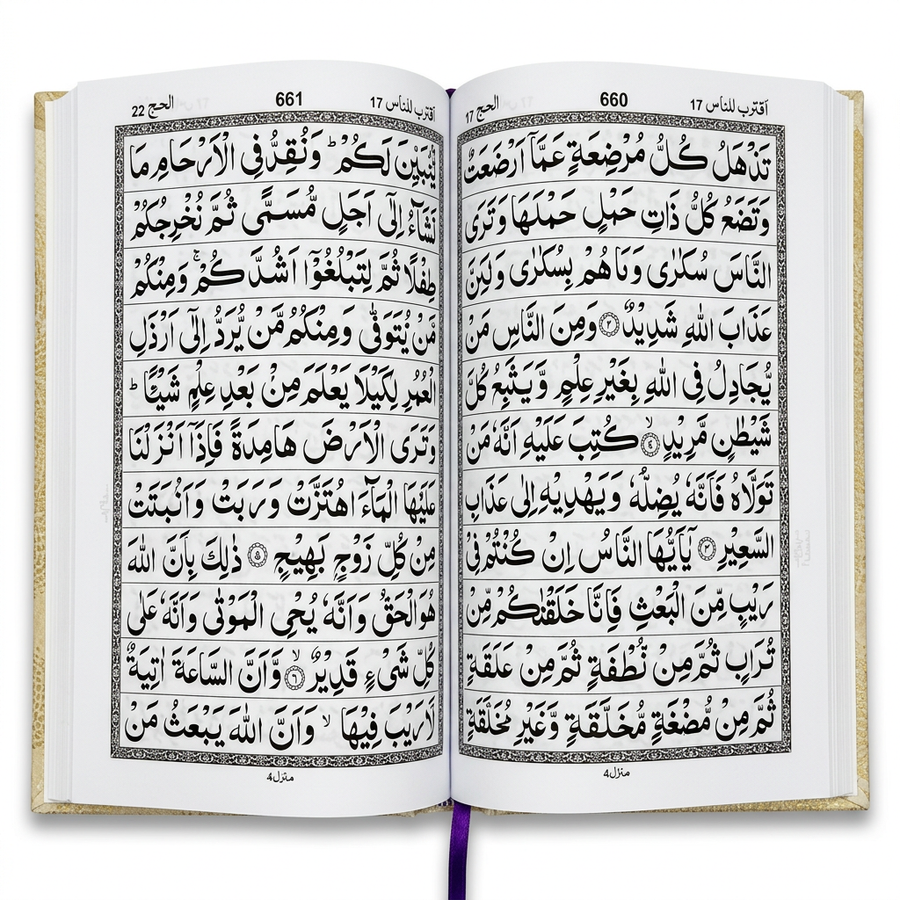 اقترب للناس 17 660 الحج 17
تَذْهَلُ كُلُّ مُرْضِعَةٍ عَمَّآ اَرْضَعَتْ
وَتَضَعُ كُلُّ ذَاتِ حَمْلٍ حَمْلَهَا وَتَرَى
النَّاسَ سُكٰرٰى وَمَا هُمْ بِسُكٰرٰى وَلٰكِنَّ
عَذَابَ اللهِ شَدِيْدٌ ۝٢ وَمِنَ النَّاسِ مَنْ
يُّجَادِلُ فِى اللهِ بِغَيْرِ عِلْمٍ وَّيَتَّبِعُ كُلَّ
شَيْطٰنٍ مَّرِيْدٍ ۙ۝٤ كُتِبَ عَلَيْهِ اَنَّهٗ مَنْ
تَوَلَّاهُ فَاَنَّهٗ يُضِلُّهٗ وَيَهْدِيْهِ اِلٰى عَذَابِ
السَّعِيْرِ ۝٣ يٰٓاَيُّهَا النَّاسُ اِنْ كُنْتُمْ فِىْ
رَيْبٍ مِّنَ الْبَعْثِ فَاِنَّا خَلَقْنٰكُمْ مِّنْ
تُرَابٍ ثُمَّ مِنْ نُّطْفَةٍ ثُمَّ مِنْ عَلَقَةٍ
ثُمَّ مِنْ مُّضْغَةٍ مُّخَلَّقَةٍ وَّغَيْرِ مُخَلَّقَةٍ
منزل 4
اقترب للناس 17 661 الحج 22
لِّنُبَيِّنَ لَكُمْ ؕ وَنُقِرُّ فِى الْاَرْحَامِ مَا
نَشَآءُ اِلٰٓى اَجَلٍ مُّسَمًّى ثُمَّ نُخْرِجُكُمْ
طِفْلًا ثُمَّ لِتَبْلُغُوْٓا اَشُدَّكُمْ ۚ وَمِنْكُمْ
مَّنْ يُّتَوَفّٰى وَمِنْكُمْ مَّنْ يُّرَدُّ اِلٰٓى اَرْذَلِ
الْعُمُرِ لِكَيْلَا يَعْلَمَ مِنْۢ بَعْدِ عِلْمٍ شَيْئًا ؕ
وَتَرَى الْاَرْضَ هَامِدَةً فَاِذَآ اَنْزَلْنَا
عَلَيْهَا الْمَآءَ اهْتَزَّتْ وَرَبَتْ وَاَنْۢبَتَتْ
مِنْ كُلِّ زَوْجٍۭ بَهِيْجٍ ۝٥ ذٰلِكَ بِاَنَّ اللهَ
هُوَ الْحَقُّ وَاَنَّهٗ يُحْىِ الْمَوْتٰى وَاَنَّهٗ عَلٰى
كُلِّ شَىْءٍ قَدِيْرٌ ۙ۝٦ وَّاَنَّ السَّاعَةَ اٰتِيَةٌ
لَّا رَيْبَ فِيْهَا ۙ وَاَنَّ اللهَ يَبْعَثُ مَنْ
منزل 4